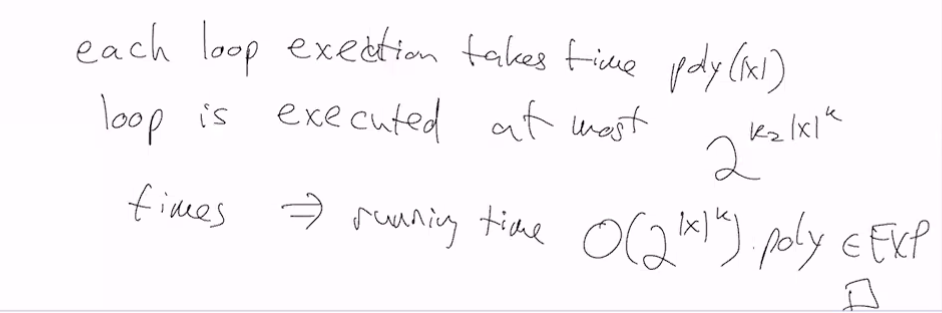 each loop exection takes time poly(|x|)
loop is executed at most 2^{k₂|x|^k}
times ⇒ running time O(2^{|x|^k}).poly ∈ EXP
□